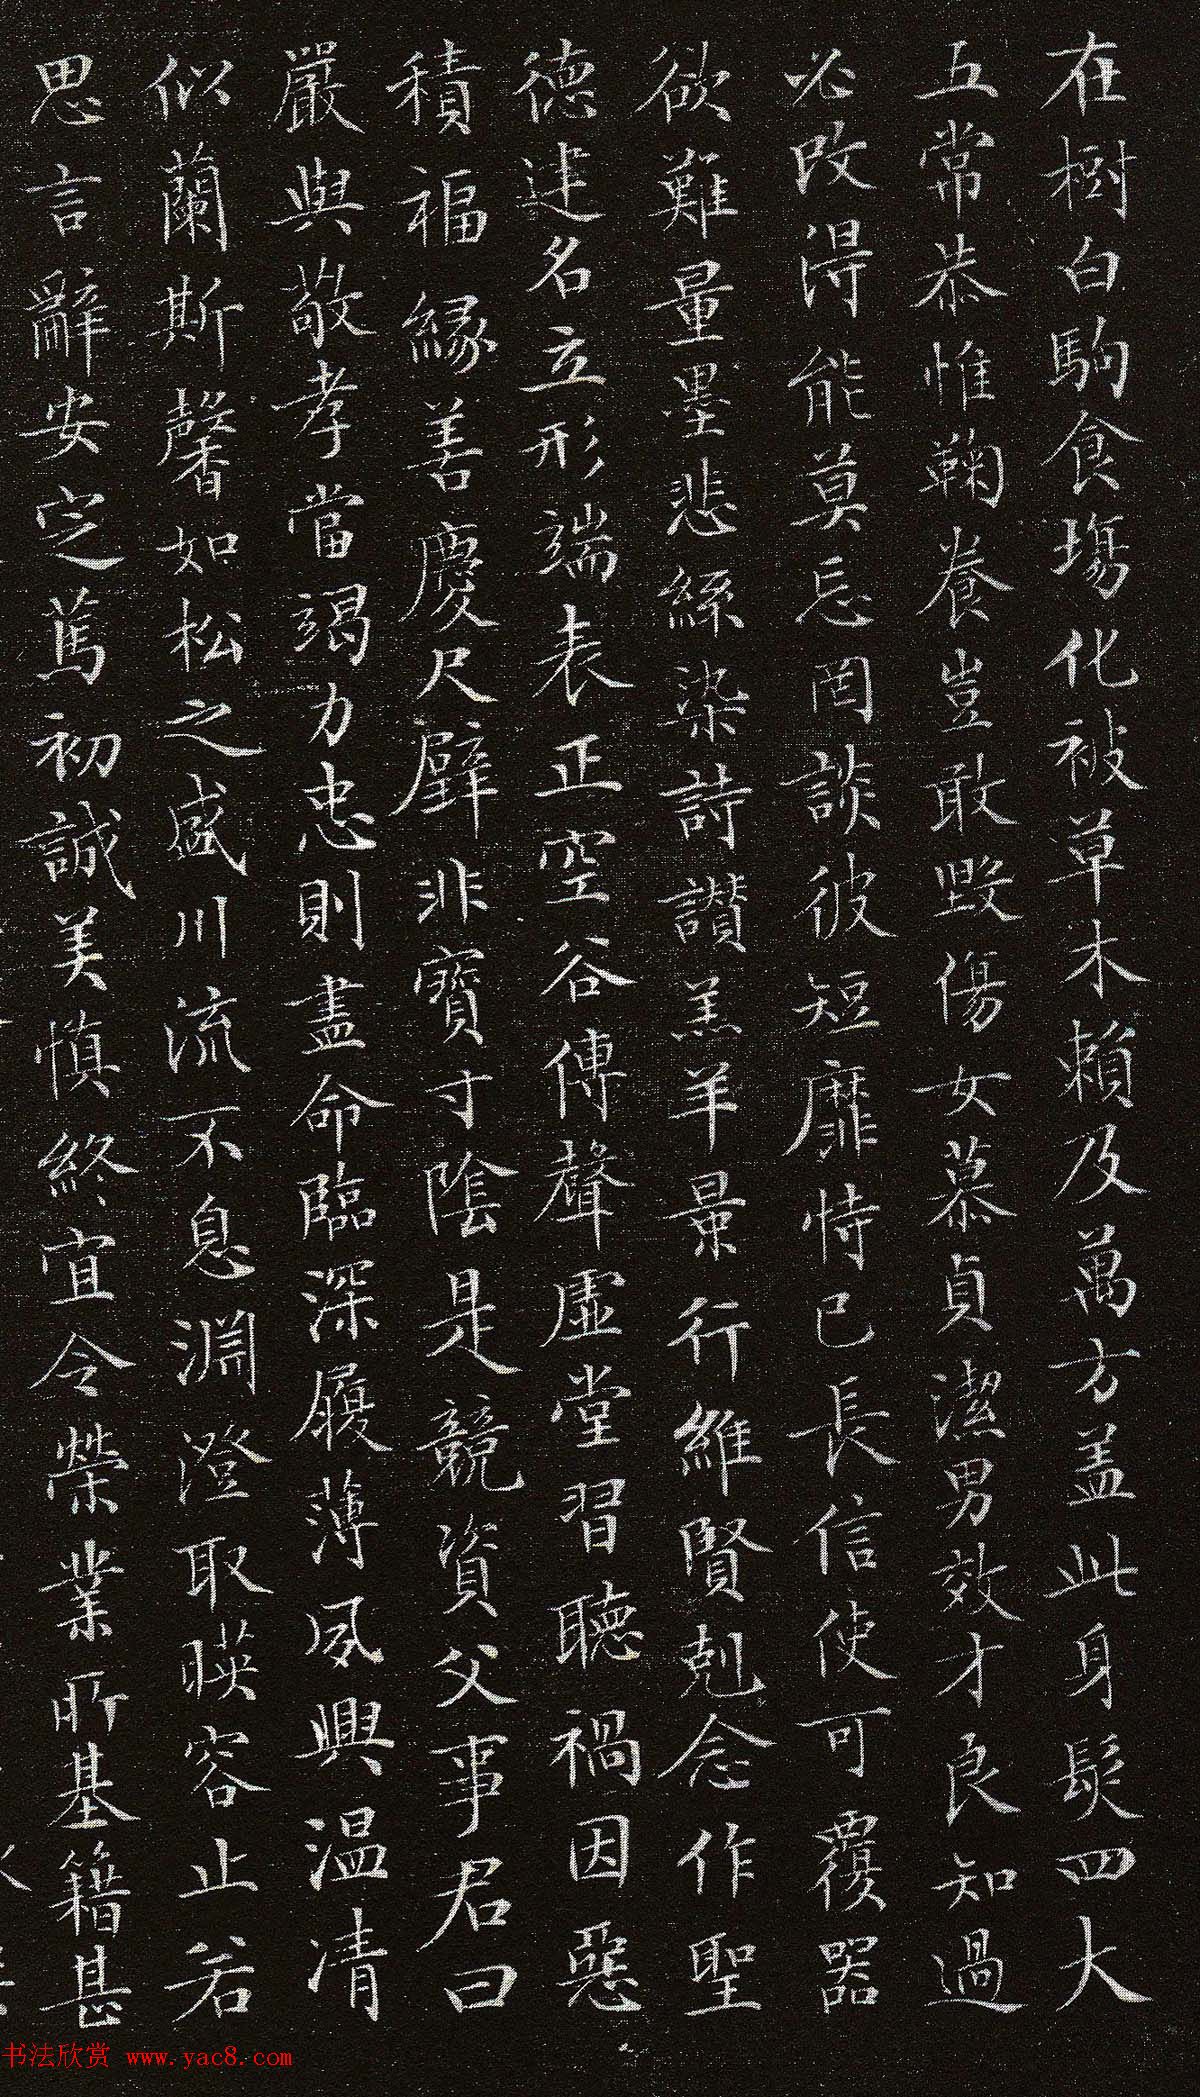 在樹白駒食場化被草木賴及萬方盖此身髮四大
五常恭惟鞠養豈敢毀傷女慕貞潔男效才良知過
必改得能莫忘罔談彼短靡恃己長信使可覆器
欲難量墨悲絲染詩讃羔羊景行維賢剋念作聖
德建名立形端表正空谷傳聲虛堂習聽禍因惡
積福緣善慶尺璧非寶寸陰是競資父事君曰
嚴與敬孝當竭力忠則盡命臨深履薄夙興温凊
似蘭斯馨如松之盛川流不息淵澄取暎容止若
思言辭安定篤初誠美慎終宜令榮業所基籍甚
书法欣赏 www.yac8.com